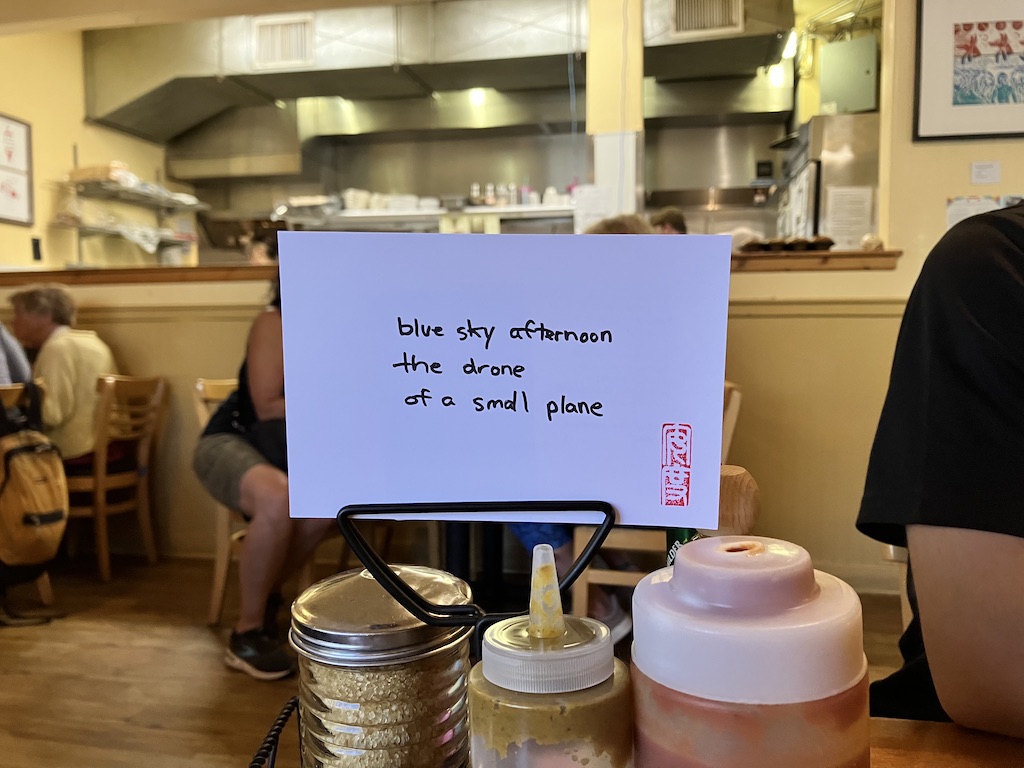 blue sky afternoon
the drone
of a small plane